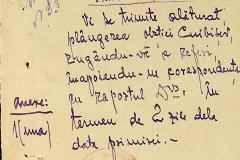 Vi se trimite alăturat
plângerea obștii Cuibiser,
rugându-vă a referi
înapoindu-ne corespondența
cu Raportul Dvs, în
termen de 2 zile dela
data primirei. -
Anexe: